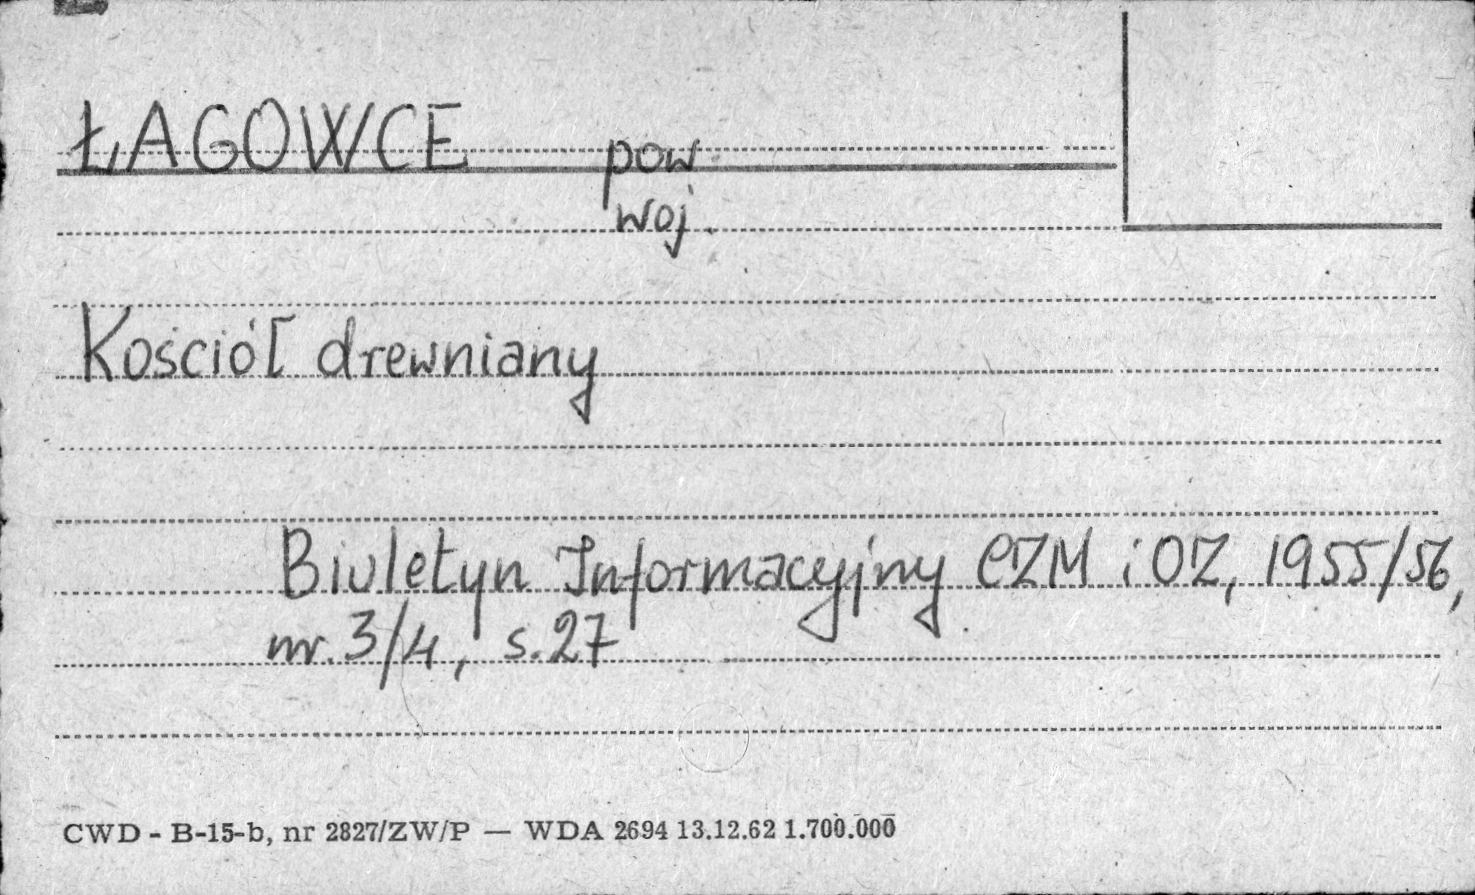 ŁAGOWCE pow.
woj.
Kościół drewniany
Biuletyn Informacyjny CZM i OZ, 1955/56,
nr. 3/4, s. 27
CWD - B-15-b, nr 2827/ZW/P — WDA 2694 13.12.62 1.700.000